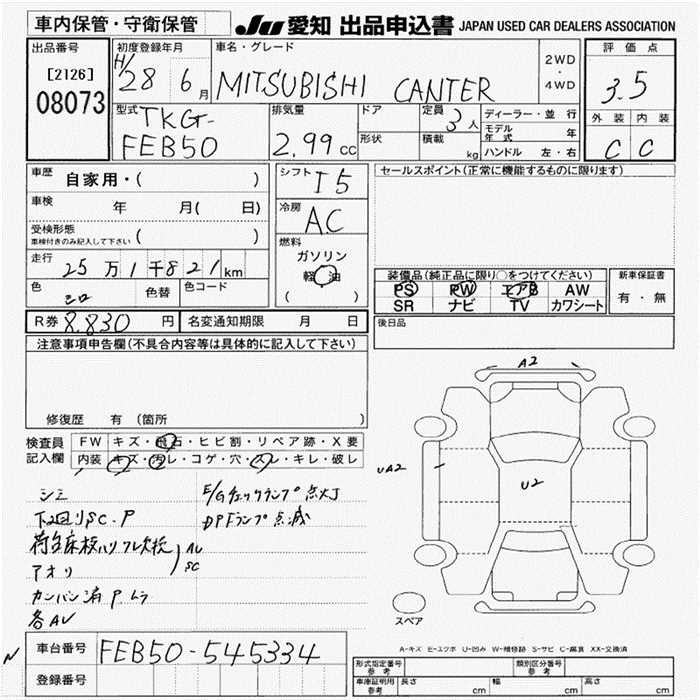 車内保管・守衛保管
JU 愛知 出品申込書 JAPAN USED CAR DEALERS ASSOCIATION
出品番号
[2126]
08073
初度登録年月
H/28 6月
車名・グレード
MITSUBISHI CANTER
2WD
・
4WD
評価点
3.5
外装 内装
C C
型式
TKG-
FEB50
排気量
2.99 cc
ドア
形状
定員
3人
積載
kg
ディーラー・並行
モデル年式 年
ハンドル 左・右
車歴
自家用・( )
車検
年 月( 日)
受検形態
車検付きのみ記入して下さい ( )
走行
25万1千821km
色
シロ
色替
色コード
シフト I5
冷房
AC
燃料
ガソリン
軽油
( )
R券 8.830 円
名変通知期限 月 日
セールスポイント(正常に機能するものに限ります)
装備品(純正品に限り○をつけてください)
PS PW エアB AW
SR ナビ TV カワシート
新車保証書
有・無
後日品
注意事項申告欄(不具合内容等は具体的に記入して下さい)
修復歴 有(箇所 )
検査員
記入欄
FW キズ・飛石・ヒビ割・リペア跡・X要
内装 キズ・汚レ・コゲ・穴・スレ・キレ・破レ
シミ
下回りSC.P
アオリ
AU
SC
カンバン消P.ムラ
各AU
E/Gチェックランプ点灯
DPFランプ点滅
A2
UA2
U2
スペア
A-キズ E-エクボ U-凹み W-補修跡 S-サビ C-腐食 XX-交換済
N
車台番号 FEB50-545334
登録番号
形式指定番号
参考
類別区分番号
参考
車庫証明用
参考
長さ cm 幅 cm 高さ cm